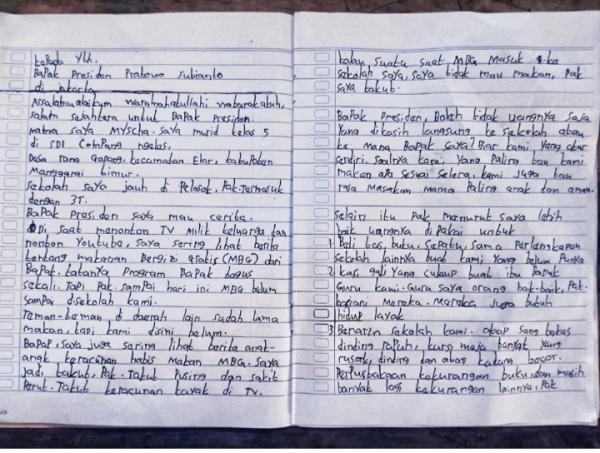 kepada Yth.
Bapak Presiden Prabowo Subianto
di jakarta
Assalamualaikum warahmahatullahi wabarakatuh,
salam sejahtera untuk Bapak Presiden.
Nama saya MYscha. saya murid kelas 5
di SDI Compang ngeles,
Desa rana Gapang, kecamatan Elar, kabupaten
Manggarai timur.
sekolah saya jauh di Pelosok, Pak. Termasuk
dengan 3T.
Bapak Presiden saya mau cerita.
Di saat menonton TV Milik keluarga dan
nonton Youtube, saya sering lihat berita
tentang makanan Bergizi Gratis (MBG) dari
Bapak. katanya Program Bapak bagus
sekali. Tapi Pak. sampai hari ini MBG belum
sampai disekolah kami.
Teman-teman di daerah lain sudah lama
makan, tapi kami disini belum.
Bapak, saya juga sering lihat berita anak-
anak keracunan habis Makan MBG. saya
jadi takut, Pak. Takut Pusing dan sakit
Perut. Takut keracunan kayak di TV.
kalau suatu saat MBG Masuk ke
sekolah saya, saya tidak mau makan, Pak
saya takut.
Bapak Presiden, Boleh tidak uangnya saja
Yang dikasih langsung ke sekolah atau
ke Mama Bapak saya? Biar kami Yang atur
sendiri. soalnya kami Yang Paling tau kami
makan apa sesuai selera. kami juga tau
rasa Masakan Mama Paling enak dan aman.
selain itu Pak menurut saya lebih
baik uangnya di Pakai untuk
1. Beli tas, buku, sepatu, sama Perlengkapan
sekolah lainnya buat kami Yang belum Punya
2. kasi gaji Yang cukup buat ibu Bapak
Guru kami. Guru saya orang baik-baik, Pak.
kasiani Mereka. Mereka juga butuh
hidup layak
3. Benarin sekolah kami. atap sang bekas
dinding rapuh, kursi meja banyak Yang
rusak, dinding dan atap kadang bocor.
PerPustakaan kekurangan buku, dan masih
banyak lagi kekurangan lainnya, Pak